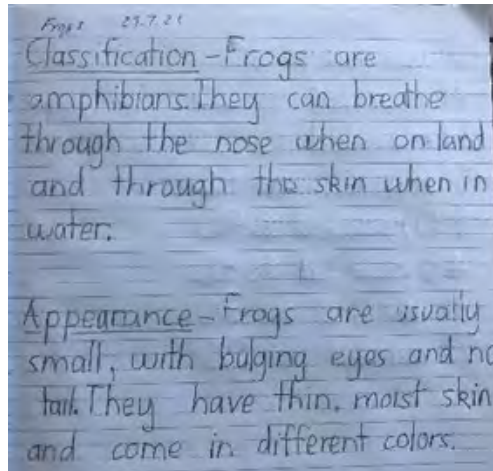 Frogs 29.7.21
Classification - Frogs are
amphibians. They can breathe
through the nose when on land
and through the skin when in
water.
Appearance - Frogs are usually
small, with bulging eyes and no
tail. They have thin, moist skin
and come in different colors.